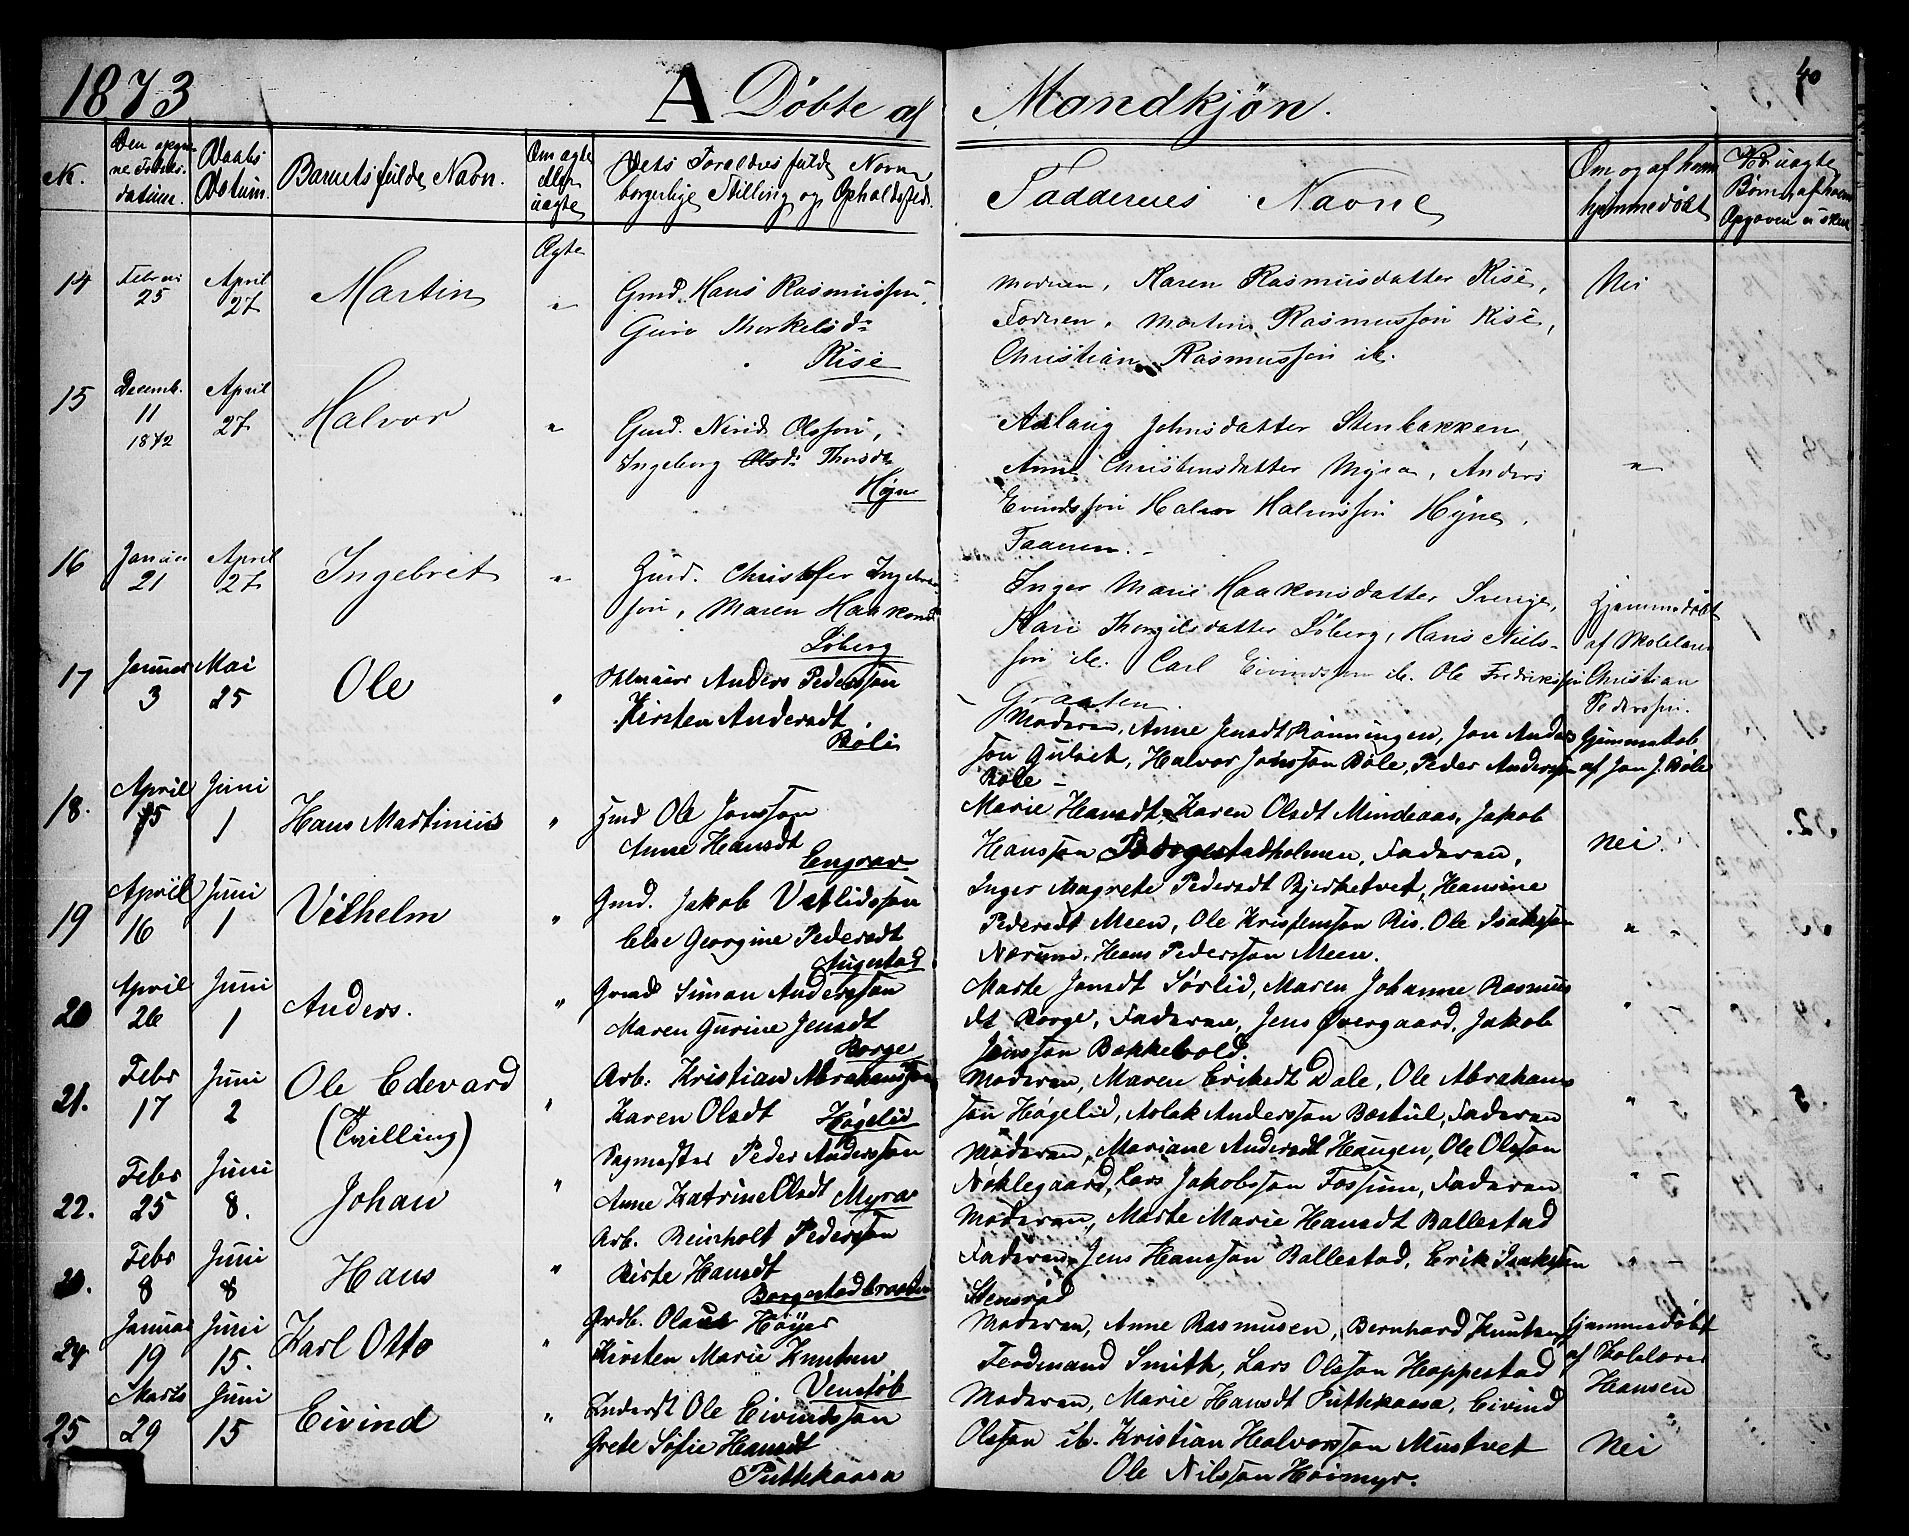 1873 A Døbte af Mandkjøn. 40
N. Den opgivne Fødselsdatum. Daabs Datum. Barnets fulde Navn. Om ægte eller uægte Dets Foraldres fulde Navne borgerlige Stilling og Opholdssted. Faddernes Navne Om og af hvem hjemmedøbt Ved uægte Børn af hvem Opgaven er skeet
Ægte
14 Februar 25 April 27 Martin " Gmd. Hans Rasmussøn,
Guro Thorkelsd:
Rise
Moderen, Karen Rasmusdatter Rise,
Faderen, Martin Rasmussøn Rise,
Christian Rasmussøn ib.
Nei
15 Decemb. 11 1872 April 27 Halvor " Gmd. Nirid Olssøn,
Ingeborg Thorsd:
Høgne
Aslaug Johnsdatter Stenbakken,
Anne Christensdatter Myra, Anders
Evindssøn Halvor Halvorssøn Høgne,
Faderen.
"
16 Januar 21 April 27 Ingebret " Hmd. Christofer Ingebret-
søn, Maren Haakonsd
Løberg
Inger Marie Haakonsdatter Sverige,
Kari Thorgilsdatter Løberg, Hans Niels-
søn ib. Carl Eivindssøn ib. Ole Fredrikssøn
Graaten.
Hjemmedøbt
af Skolelærer
Christian
Pederssøn.
17 Januar 3 Mai 25 Ole " Anders Pederssøn
Kirsten Andersdt.
Bøle
Moderen, Anne Jensdt Rønningen, Jon Anders
søn Gulset, Halvor Jonssøn Bøle, Peder Anderssøn
Bøle
Hjemmedøb
af Jon J. Bøle
18. April 15 Juni 1 Hans Martinius " Hmd Ole Jonssøn
Anne Hansdt
Engrav
Marie Hansdt, Karen Olsdt Mindeaas, Jakob
Hanssøn Borgestadholmen, Faderen,
Nei.
19 April 16 Juni 1 Vilhelm " Gmd. Jakob Vetlidssøn
Else Georgine Pedersdt
Augestad
Inger Magrete Pedersdt Bjerketvet, Hansine
Pedersdt Meen, Ole Kristenssøn Ris. Ole Isakssøn
Nørum, Hans Pederssøn Meen.
" "
20 April 26 Juni 1 Anders. " Grmd Simon Anderssøn
Maren Gurine Jensdt
Borge
Marte Jonsdt Sørlid, Maren Johanne Rasmus
dt Borge, Faderen, Jens Øvergaard, Jakob
Jonssøn Bakkebold.
"
21. Febr 17 Juni 2 Ole Edevard
(Tvilling) " Arb. Kristian Abrahamssøn
Karen Olsdt Høgelid
Moderen, Maren Eriksdt Dale, Ole Abrahams
søn Høgelid, Aslak Anderssøn Bøstul, Faderen
"
22. Febr 25 Juni 8. Johan " Sagmester Peder Anderssøn
Anne Katrine Olsdt Myra
Moderen, Mariane Andersdt Haugen, Ole Olssøn
Nøklegaard, Lars Jakobssøn Fossum, Faderen
"
23. Febr 8 Juni 8 Hans " Arb. Reinholt Pederssøn
Birte Hansdt
Borgestad
Moderen, Marte Marie Hansdt Ballestad
Faderen, Jens Hanssøn Ballestad, Erik Isakssøn
Stensrød
" -
24 Januar 19 Juni 15. Karl Otto " Grdb. Olaus Høyer
Kirsten Marie Knutsen
Venstøb
Moderen, Anne Rasmusen, Bernhard Knutsen
Ferdinand Smith, Lars Olssøn Hoppestad
Hjemmedøbt
af Skolelærer
Hansen
25 Marts 29 Juni 15 Eivind " Inderst Ole Eivindssøn
Grete Sofie Hansdt
Puttekaasa
Moderen, Marie Hansdt Puttekaasa, Eivind
Olssøn ib. Kristian Halvorssøn Mustvet
Ole Nilssøn Høimyr.
Nei